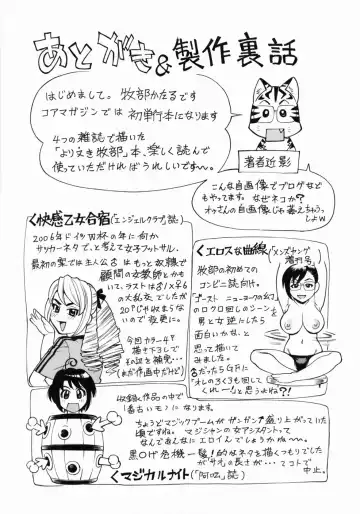 あとがき&製作裏話
はじめまして。牧部かたるです
コアマガジンでは
初単行本になります
4つの雑誌で描いた
「より文き牧部」本、楽しく読んで
使っていただければうれしいです~。
著者近影
こんな自画像でブログなど
もやってます。なぜネコか?
オッさんの自画像じゃ萎えちゃうっ
しょw
<快感乙女合宿(「エンジェルクラブ」誌)
2006年ドイツW杯の年に何か
サッカーネタで、と考えて女子フットサル。
最初の案では主人公♂はもっと奴隷で
顧問の女教師とかも
いて、ラストは♂1×♀6
の大乱交でしたが
20Pじゃ収まらな
いので変更に。
今回カラー4Pで
描き下ろしして
その辺を補完…
(まだ作画中だけど)
<エロスな曲線(「メンズヤング
増刊号」)
牧部の初めての
コンビニ誌向け。
「ゴースト ニューヨークの幻」
のロクロ回しのシーン
を男と女逆にしたら
面白いかな、と
思って描いて
みました。
♂だったらGFに
「オレのろくろも回して
くれー」と思うよね?!
収録作品の中で
1番古いモノになります。
ちょうどマジックブームがガンガン盛り上がっていた
頃ですね。マジシャンの女アシスタントって
なんであんなにエロイんでしょうかね~。
黒○げ危機一髪!的なネタも描くつもりでした
が「サオ」の長さが…てコトで
中止。
<マジカルナイト(「阿ロZ」誌)